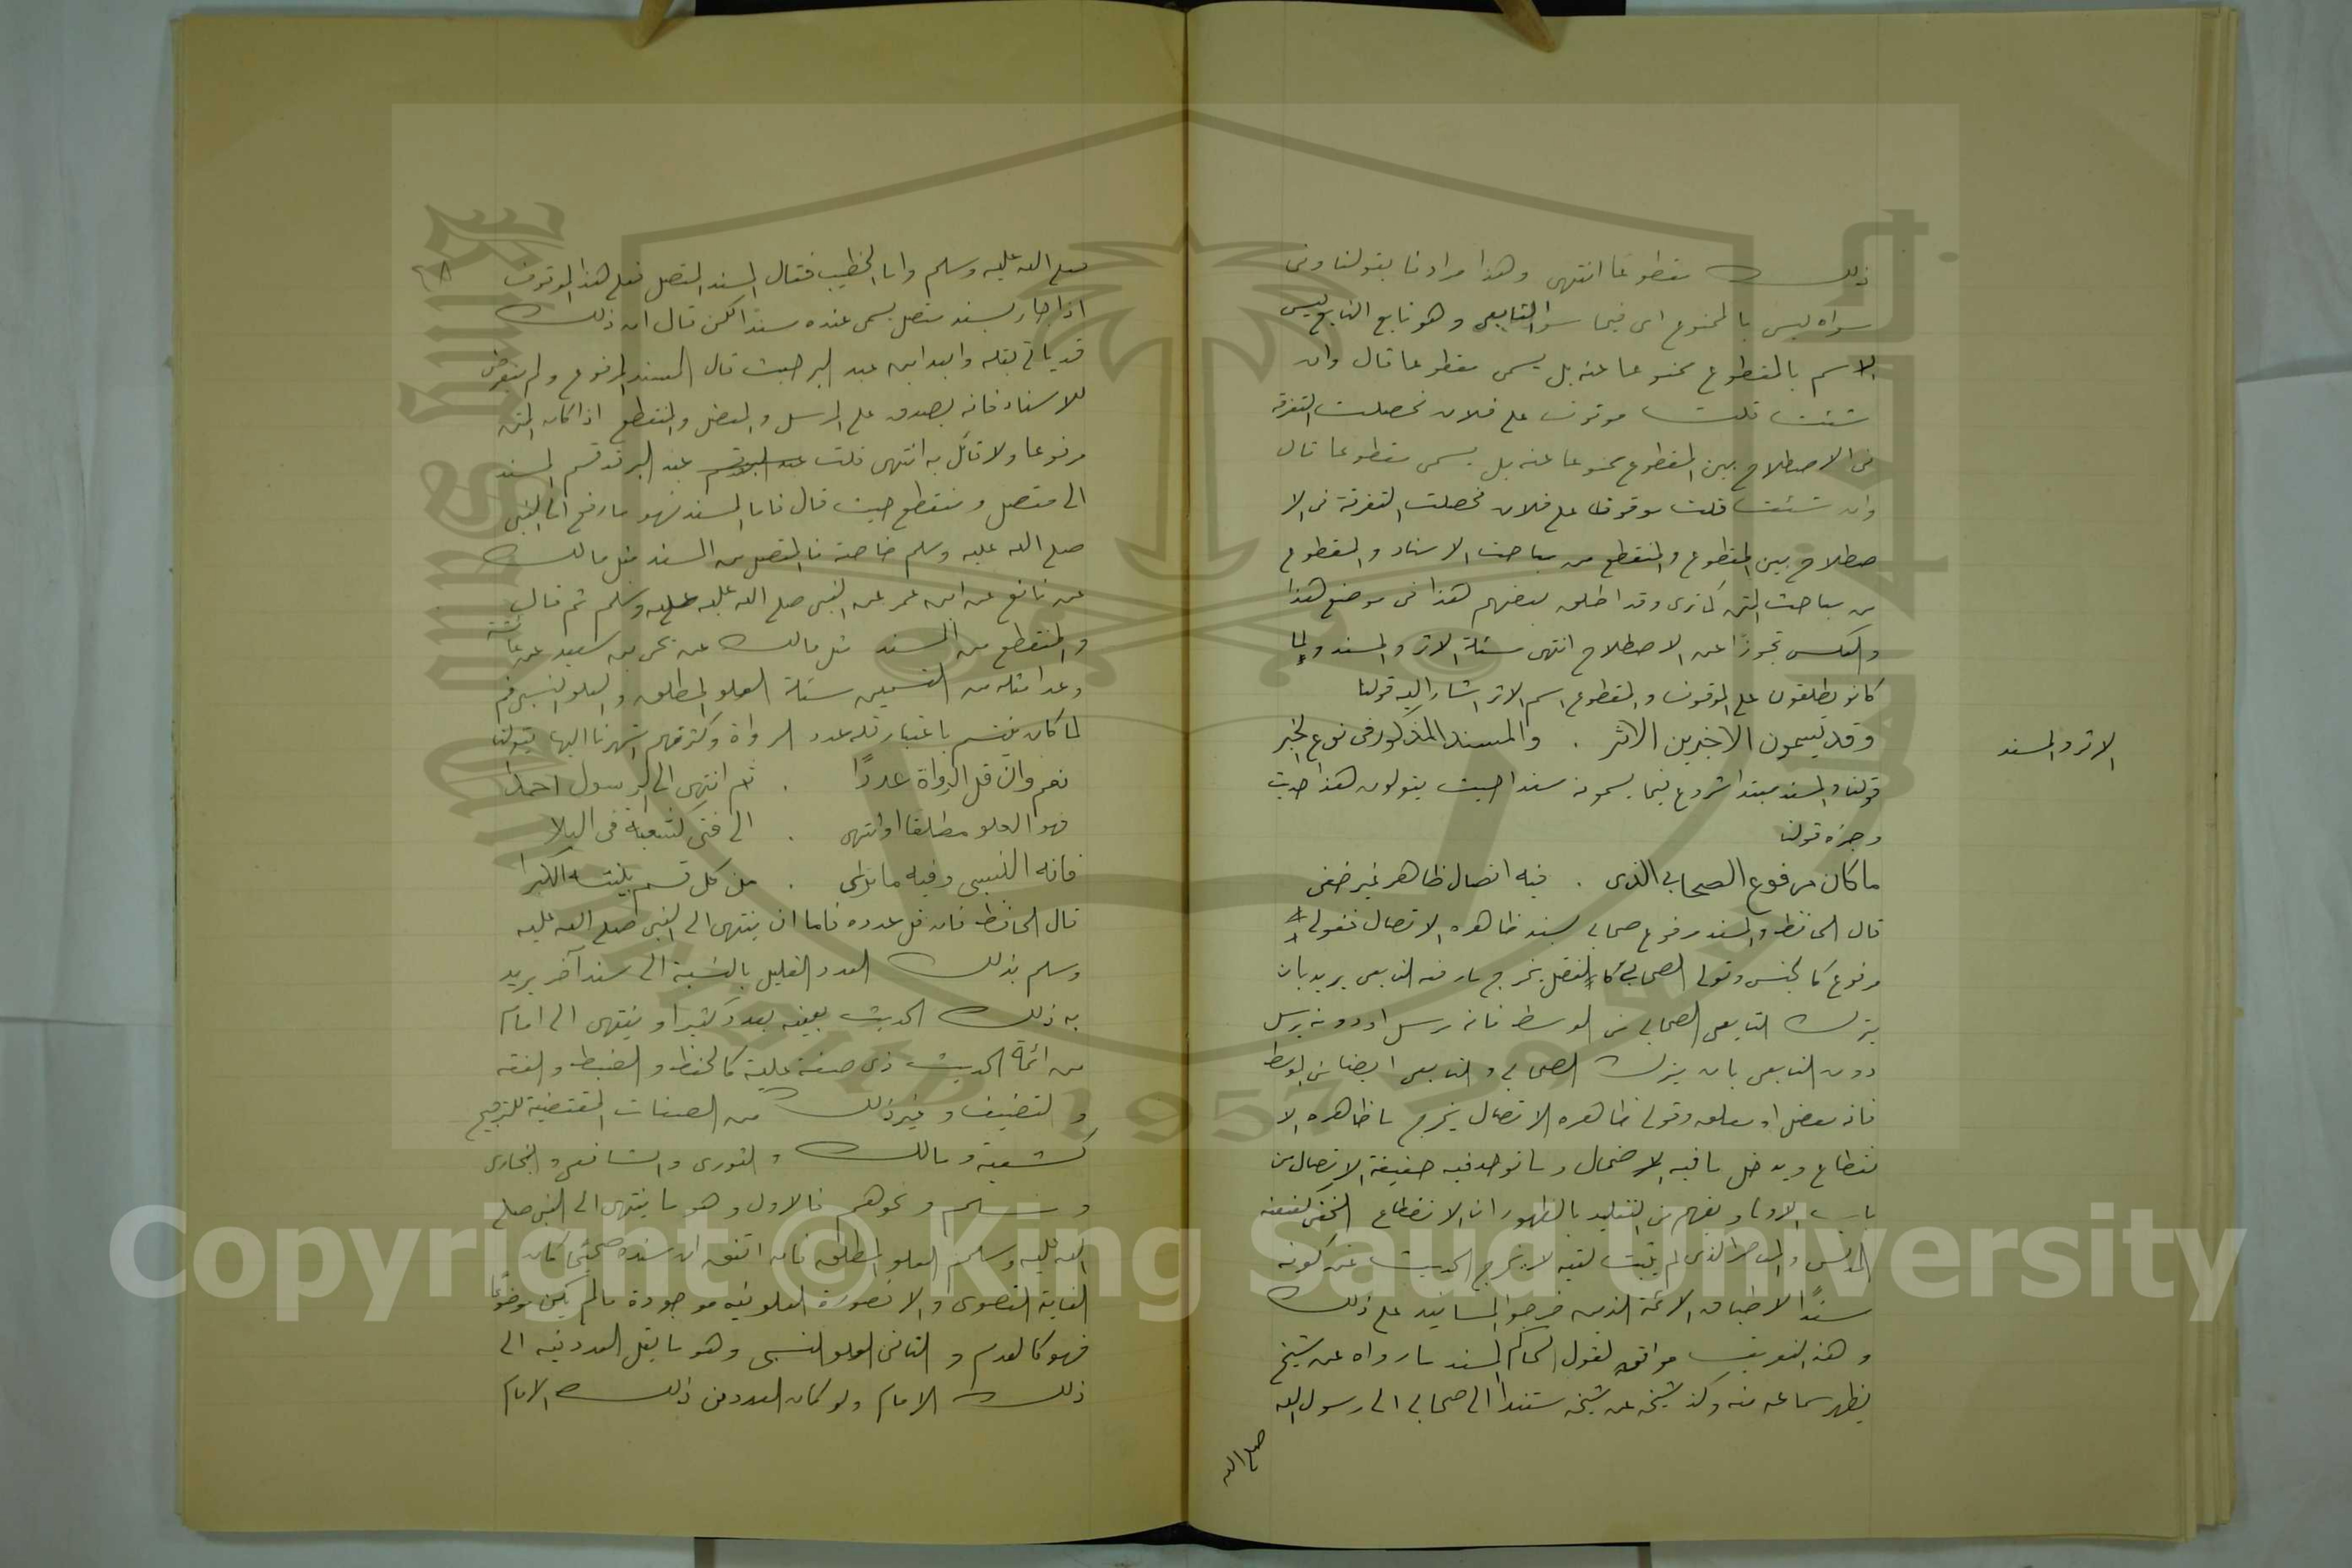 ذلك مقطوعا انتهى وهذا مرادنا بقولنا وفى
سواه ليس بالممنوع اى فيما سوا التابعى وهو تابع التابع ليس
الاسم بالمقطوع ممنوعا عنه بل يسمى مقطوعا قال وان
شئت قلت موقوف على فلان فحصلت التفرقة
فى الاصطلاح بين المقطوع ممنوعا عنه بل يسمى مقطوعا قال
وان شئت قلت موقوف على فلان فحصلت التفرقة فى الا
صطلاح بين المقطوع والمنقطع من مباحث الاسناد والمقطوع
من مباحث المتن كما ترى وقد اطلق بعضهم هذا فى موضع هذا
والعكس تجوزًا عن الاصطلاح انتهى مسئلة الاثر والمسند ولما
كانو يطلقون على الموقوف والمقطوع اسم الاثر اشار اليه قولنا
وقد يسمون الاخيرين الاثر . والمسند المذكور فى نوع الخبر
الاثر والمسند
قولنا والمسند مبتدا شروع فيما يسمونه مسندا حيث يقولون هذا حديث
وخبره قولنا
ما كان مرفوع الصحابي الذى . فيه اتصال ظاهر غير خفى
قال الحافظ والمسند مرفوع صحابي بسند ظاهره الاتصال فقولى
مرفوع كالجنس وقولى الصحابي كالفصل يخرج ما رفعه التابعى يريد بان
يترك التابعى الصحابي من الوسط فانه مرسل او دونه يرسل
دون التابعى بان يترك الصحابي والتابعى ايضا من الوسط
فانه معضل او معلق وقولى ظاهره الاتصال يخرج ما ظاهره الا
نقطاع ويدخل ما فيه الاحتمال وما توجد فيه حقيقة الاتصال من
باب الاولى ويفهم من التقييد بالظهور ان الانقطاع الخفى كعنعنة
المدلس والمعاصر الذى لم يثبت لقيه لا يخرج الحديث عن كونه
مسندًا لاطباق الائمة الذين خرجوا المسانيد على ذلك
وهذا التعريف موافق لقول الحاكم المسند ما رواه عن شيخ
يظهر سماعه منه وكذ شيخه عن شيخه مستندا الى صحابي الى رسول الله
صلى الله
صلى الله عليه وسلم واما الخطيب فقال المسند المتصل فعلى هذا الموقوف
اذا جاء بسند متصل يسمى عنده مسندا لكن قال ان ذلك
قد ياتى بقلة وابعد ابن عبد البر حيث قال المسند المرفوع ولم يتعرض
للاسناد فانه يصدق على المرسل والمعضل والمنقطع اذا كان المتن
مرفوعا ولا قائل به انتهى قلت عبد البر قد قسم المسند
الى متصل ومنقطع حيث قال فاما المسند فهو ما رفع الى النبى
صلى الله عليه وسلم خاصة فالمتصل من المسند مثل مالك
عن نافع عن ابن عمر عن النبى صلى الله عليه عليه وسلم ثم قال
والمنقطع من المسند مثل مالك عن يحى بن سعيد عن عائشة
وعدا مثله من القسمين مسئلة العلو المطلق والعلو النسبى ثم
لما كان ينقسم باعتبار قلة عدد الرواة وكثرتهم اشرنا اليها بقولنا
نعم وان قل الرواة عددًا . ثم انتهى الى الرسول احمدا
فهو العلو مطلقا او انتهى . الى فتى كشعبة فى
فانه النسبى وفيه ما ترى . من كل قسم
قال الحافظ فان قل عدده فاما ان ينتهى الى النبى صلى الله عليه
وسلم بذلك العدد القليل بالنسبة الى سند آخر يريد
به ذلك الحديث بعينه بعدد كثير او ينتهى الى امام
من ائمة الحديث ذى صفة علية كالحفظ والضبط والفقه
والتصنيف وغير ذلك من الصفات المقتضية للترجيح
كشعبة ومالك والثورى والشافعى والبخارى
ومسلم ونحوهم فالاول وهو ما ينتهى الى النبى صلى
الله عليه وسلم العلو المطلق فان اتفق ان سنده صحيحًا كان
الغاية القصوى والا فصورة العلو فيه موجودة ما لم يكن موضوعًا
فهو كالعدم والثانى العلو النسبى وهو ما يقل العدد فيه الى
ذلك الامام ولو كان العدد من ذلك الامام
Copyright © King Saud University
1957